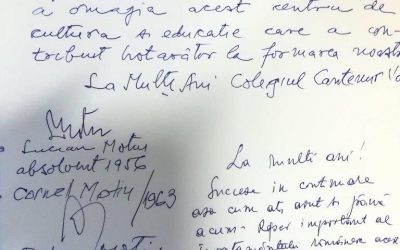 a omagia acest centru de
cultura si educatie care a con-
tribuit hotarâtor la formarea noastr
La Mulți Ani Colegiul Cantemir Vo
Lucian Motiu
absolvent 1956
Cornel Motiu/1963
La multi ani!
Succese in continuare
asa cum ati avut si pâna
acum. Reper important al
învatamântului românesc aces